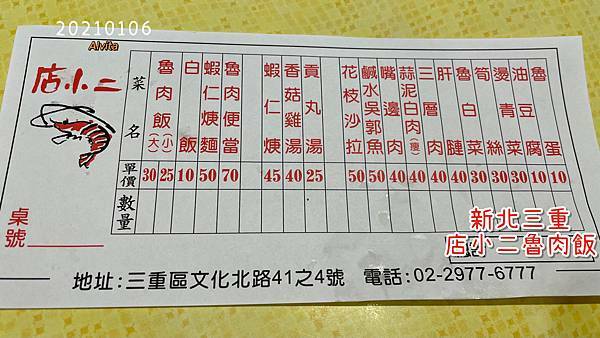 20210106
Alvita
店小二
菜名
魯肉飯(大)(小)
白飯
蝦仁焿麵
魯肉便當
蝦仁焿
香菇雞湯
貢丸湯
花枝沙拉
鹹水吳郭魚
嘴邊肉
蒜泥白肉(瘦)
三層肉
肝腱
魯白菜
筍絲
燙青菜
油豆腐
魯蛋
單價 30 25 10 50 70 45 40 25 50 50 40 40 40 40 30 30 30 10 10
數量
桌號
新北三重
店小二魯肉飯
地址:三重區文化北路41之4號 電話:02-2977-6777